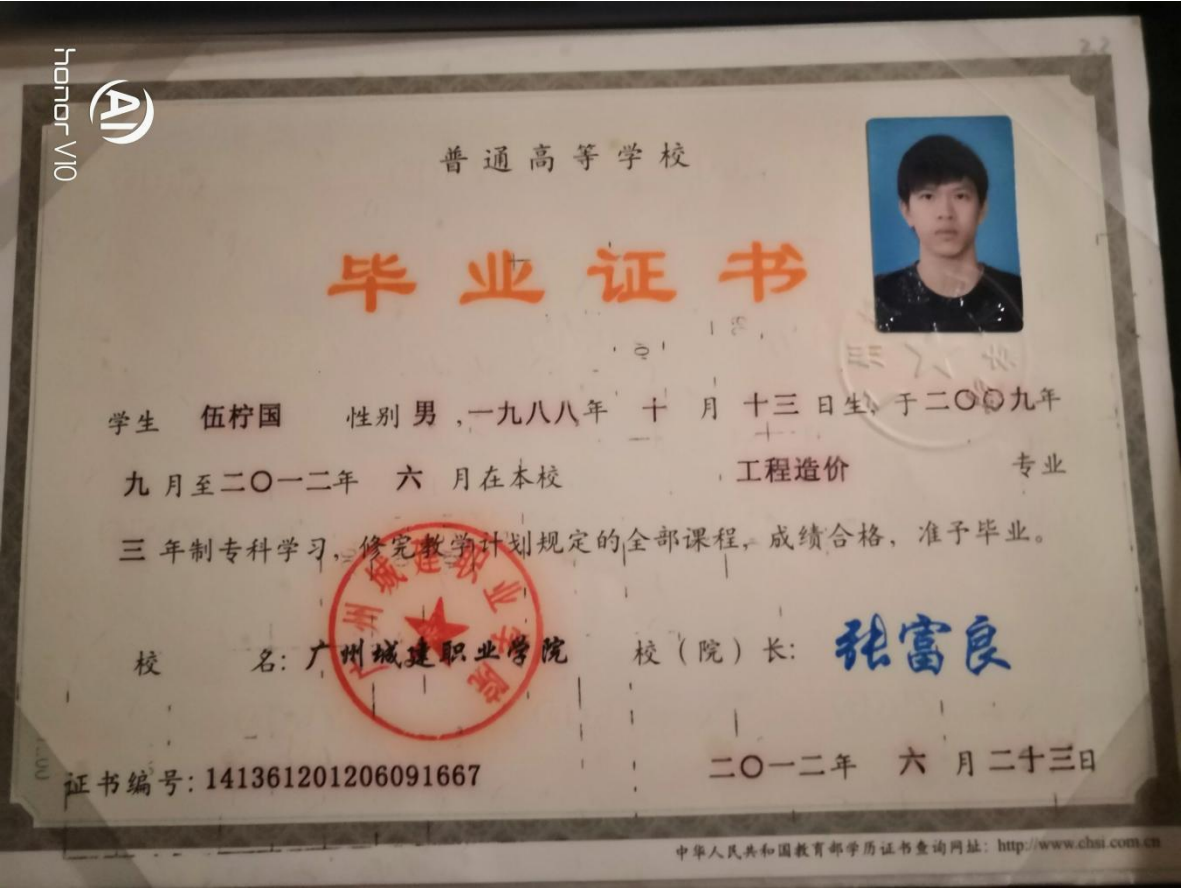 honor V10
AI
22
普通高等学校
毕业证书
学生 伍柠国 性别 男 ，一九八八年 十 月 十三 日生，于二〇〇九年
九 月至二〇一二年 六 月在本校 工程造价 专业
三 年制专科学习，修完教学计划规定的全部课程，成绩合格，准予毕业。
广州城建职业学院
校 名：广州城建职业学院 校（院）长：张富良
证书编号：141361201206091667 二〇一二年 六 月 二十三日
中华人民共和国教育部学历证书查询网址：http://www.chsi.com.cn